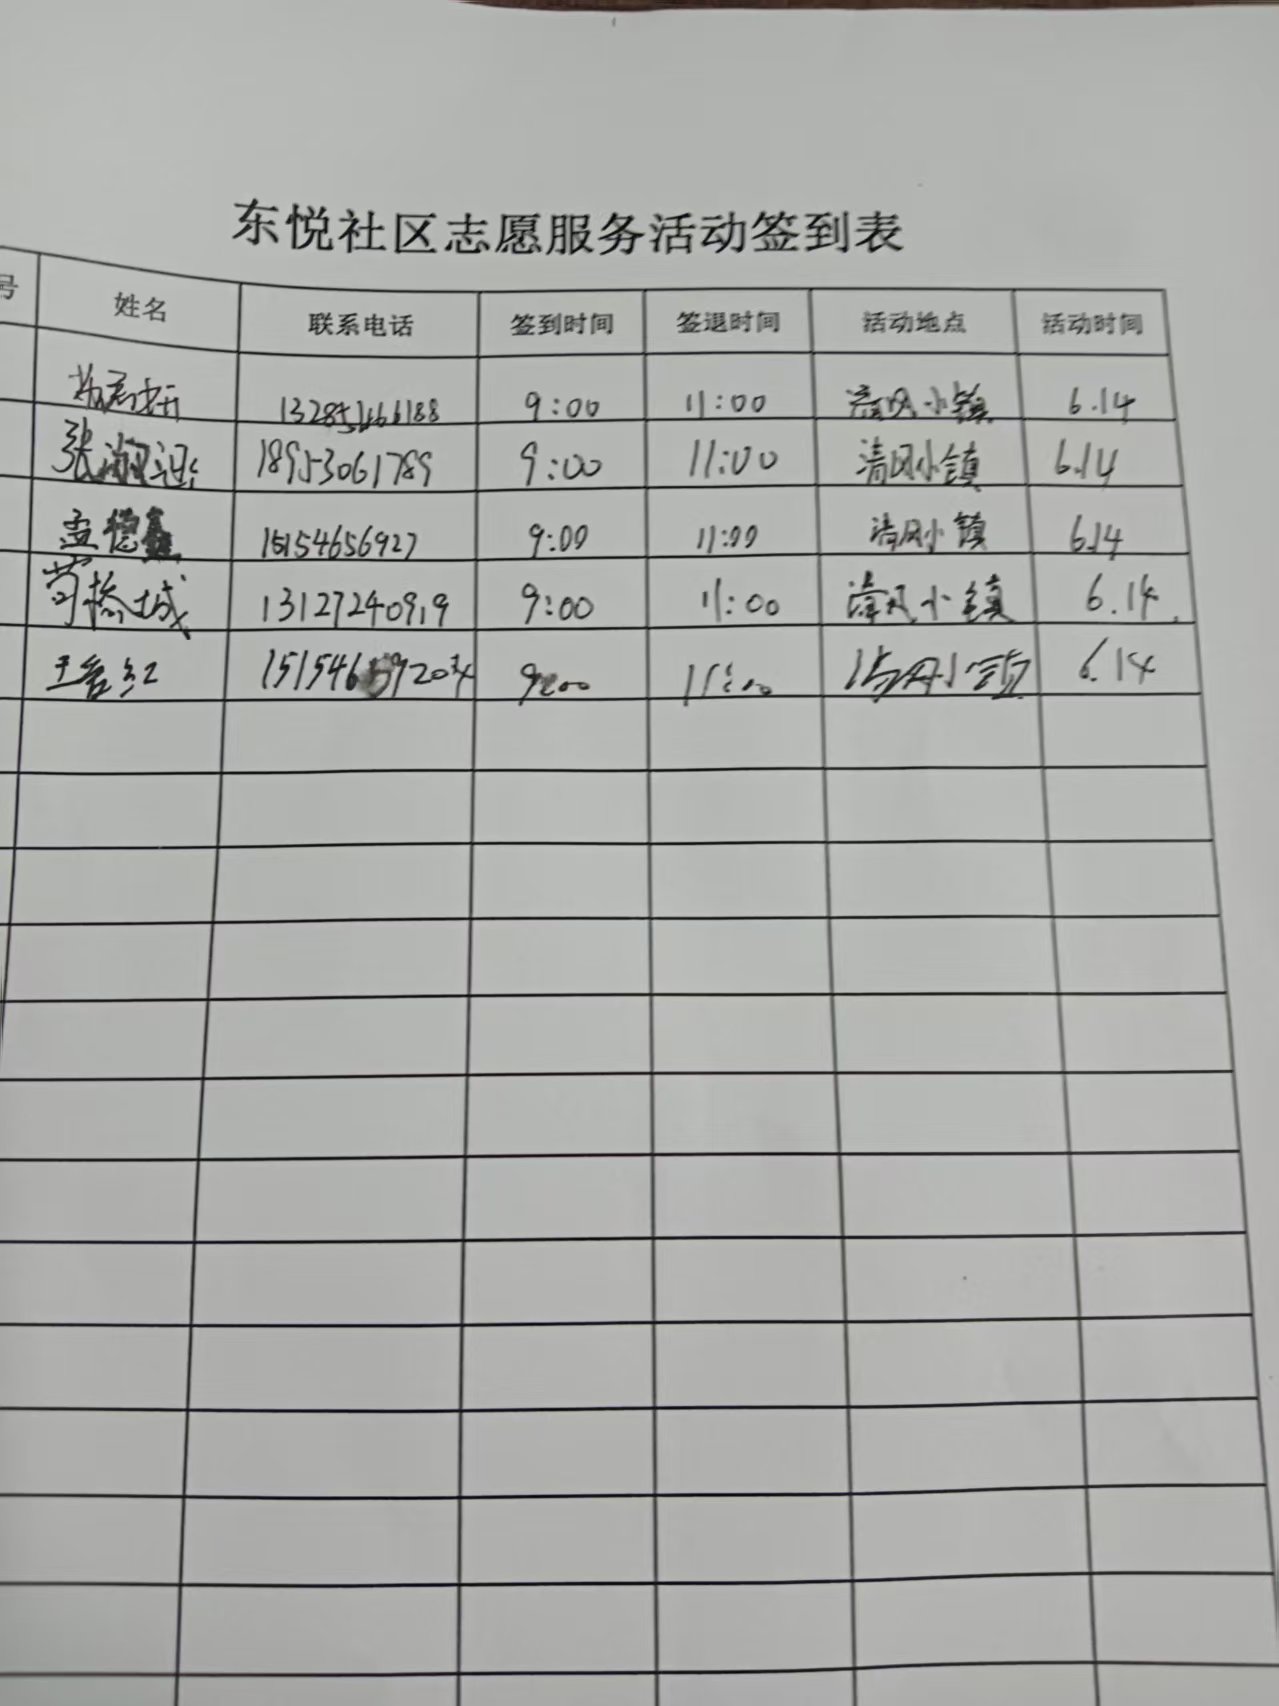 东悦社区志愿服务活动签到表
号 姓名 联系电话 签到时间 签退时间 活动地点 活动时间
9:00 11:00 清风小镇 6.14
张淑 18953061789 9:00 11:00 清风小镇 6.14
孟德鑫 15154656927 9:00 11:00 清风小镇 6.14
苟 城 13127240919 9:00 11:00 清风小镇 6.14
王 红 9:00 11:00 清风小镇 6.14